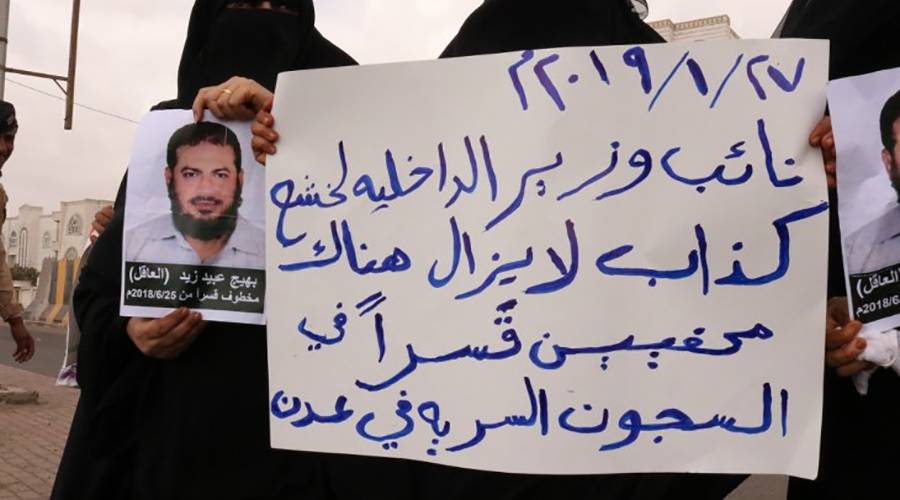 ٢٠١٩/١/٢٧م
نائب وزير الداخليه لخشع
كذاب لا يزال هناك
مخفيين قسراً في
السجون السريه في عدن
بهيج عبيد زيد (العاقل)
مخطوف قسراً من 2018/6/25م
العاقل)
2018/6/